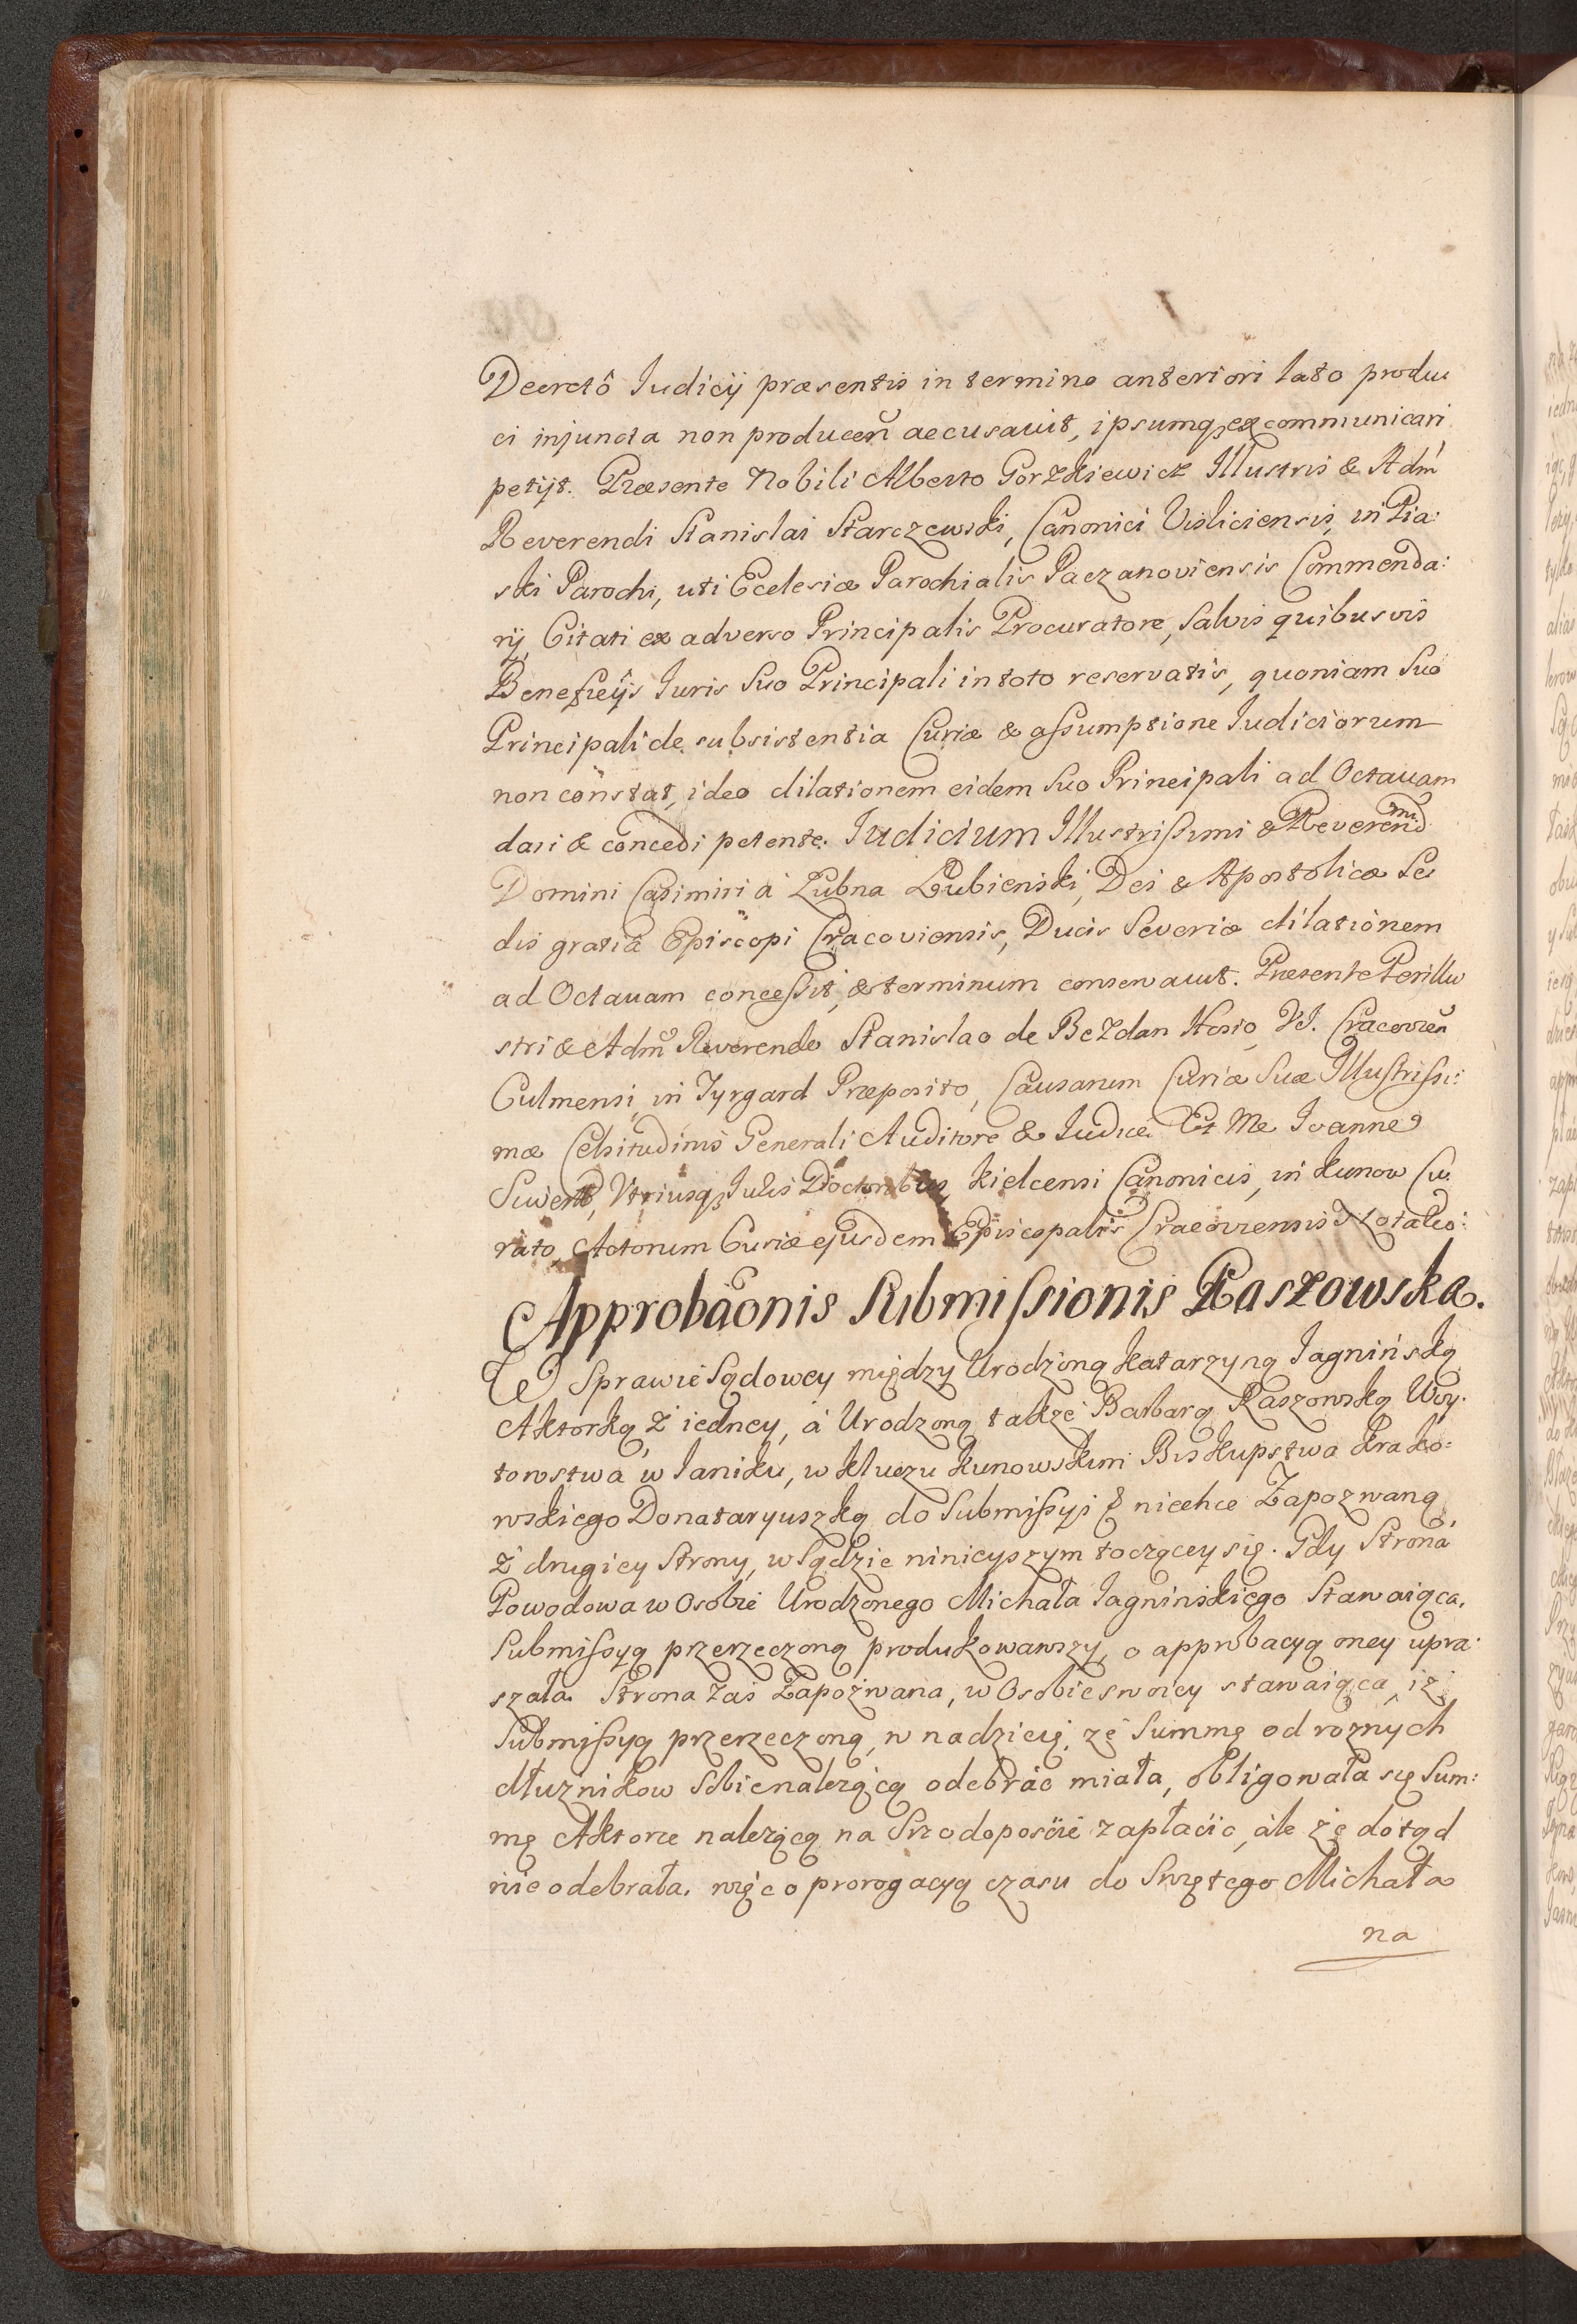 Decretô Iudicÿ præsentis in termino anteriori lato produ
ci injuncta non producen̄ accusavit, ipsumq₃ excommunicari
petijt. Præsente Nobili Alberto Gorzkiewicz Illustris & Adm̄
Reverendi Stanislai Starczewski, Canonici Visliciensis, in Pia:
ski Parochi, uti Ecclesiæ Parochialis Paczanoviensis Commenda:
rÿ, Citati ex adverso Principalis Procuratore, Salvis quibusvis
Beneficÿs Iuris Suo Principali in toto reservatis, quoniam Suo
Principali de subsistentia Curiæ & aſsumptione Iudiciorum
non constat, ideo dilationem eidem Suo Principali ad Octavam
dari & concedi petente. Iudicium Illustriſsimi & Reverendmi
Domini Casimiri à Łubna Łubieński, Dei & Apostolicæ Se
dis gratiâ Episcopi Cracoviensis, Ducis Severiæ dilationem
ad Octavam conceſsit, & terminum conservavit. Præsente Perillu
stri & Adm̄ Reverendo Stanislao de Bezdan Hosio, VI. Cracovien̄
Culmensi, in Tyrgard Præposito, Causarum Curiæ Suæ Illustriſsi:
mæ Celsitudinis Generali Auditore & Iudice Et Me Ioanne
Suient, Utriusq₃ Iuris Doctoribus, Kielcensi Canonicis, in Kunow Cu
rato, Actorum Curiæ ejusdem Episcopalis Cracoviensis Notario:
Approbaōnis Submiſsionis Raszowska.
W Sprawie Sądowey między Urodzoną Katarzyną Jagnińską
Aktorką, z iedney, à Urodzoną także Barbarą Raszowską Woy:
towstwa w Janiku, w kluczu Kunowskim Biskupstwa Krako:
wskiego Donataryuszką do Submiſsyi & niechce Zapozwaną
z drugiey Strony, w Sądzie ninieyszym toczącey się. Gdy Strona
Powodowa w Osobie Urodzonego Michała Jagnińskiego Stawaiąca,
Submiſsyą przerzeczoną produkowawszy, o approbacyą oney upra:
szała. Strona zaś Zapozwana, w Osobie swoiey stawaiąca, iż
Submiſsyą przerzeczoną, w nadzieię, zę Summę od roznych
dłuznikow Sobie nalezącą odebrać miała, obligowała się Sum:
mę Aktorce nalezącą na Szrodoposcie zapłacić, ále zę dotąd
nie odebrała, więc o prorogacyą czasu do Swiętego Michała
na